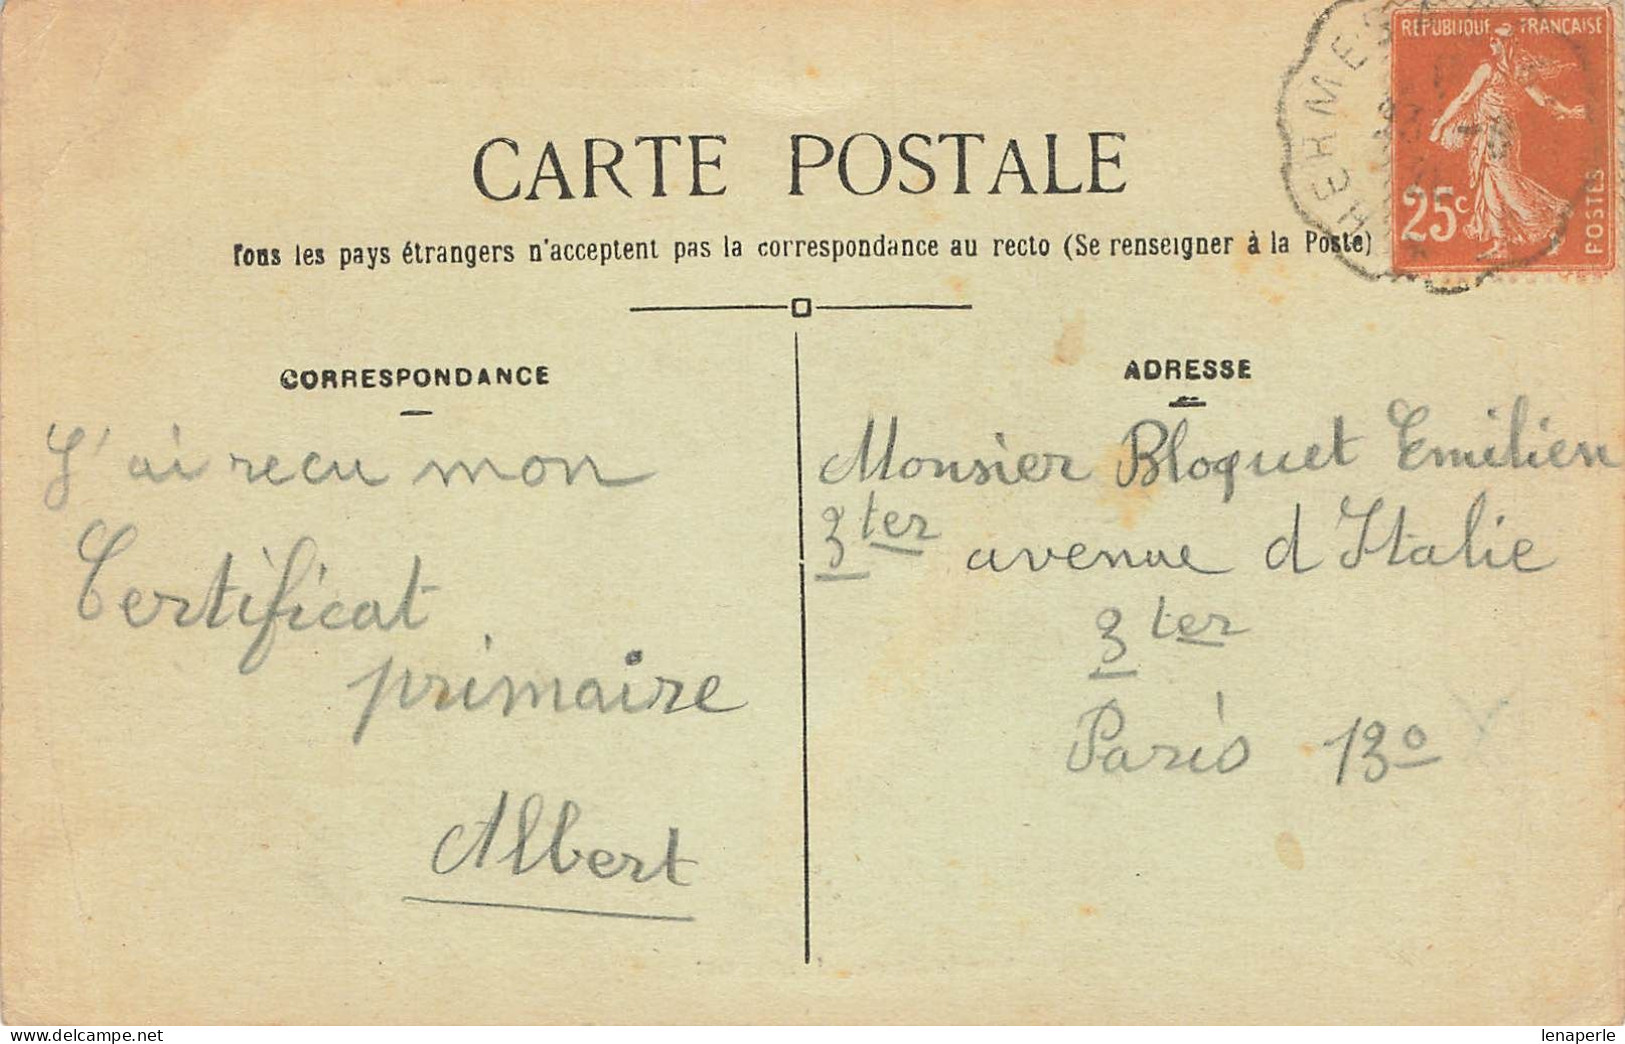 CARTE POSTALE
Tous les pays étrangers n'acceptent pas la correspondance au recto (Se renseigner à la Poste)
CORRESPONDANCE
J'ai recu mon
Certificat
primaire
Albert
ADRESSE
Monsier Bloquet Emilien
3ter
avenue d Italie
3ter
Paris 13o
REPUBLIQUE FRANÇAISE
25c
POSTES
HERMES
lenaperle